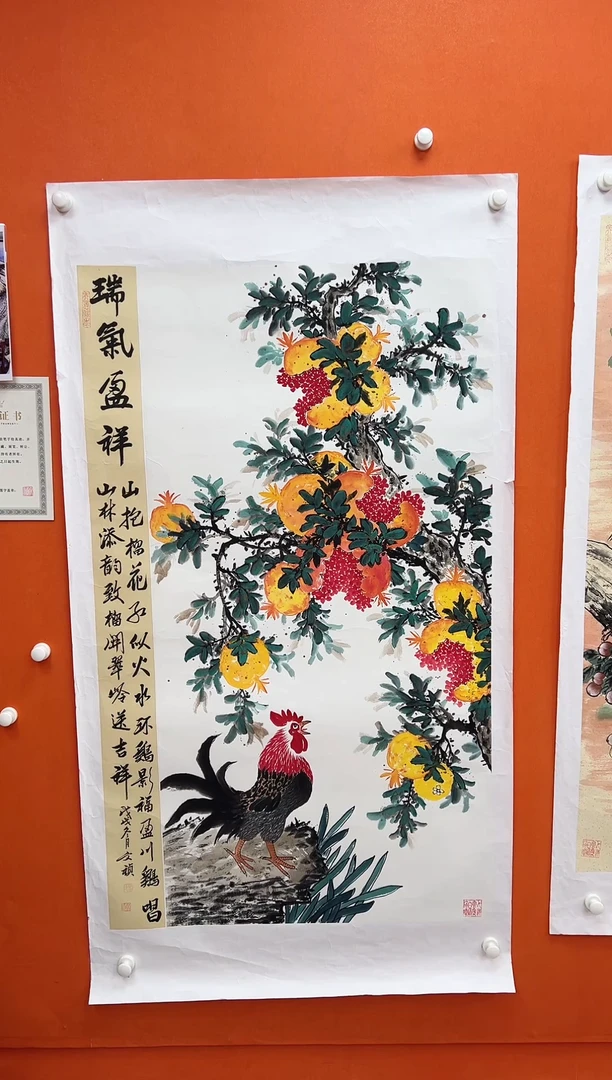 瑞氣盈祥
山抱榴花红似火水环鷄影福盈川鷄唱
山林添韵致榴開翠岭送吉祥
戊戌冬月文禎
证书